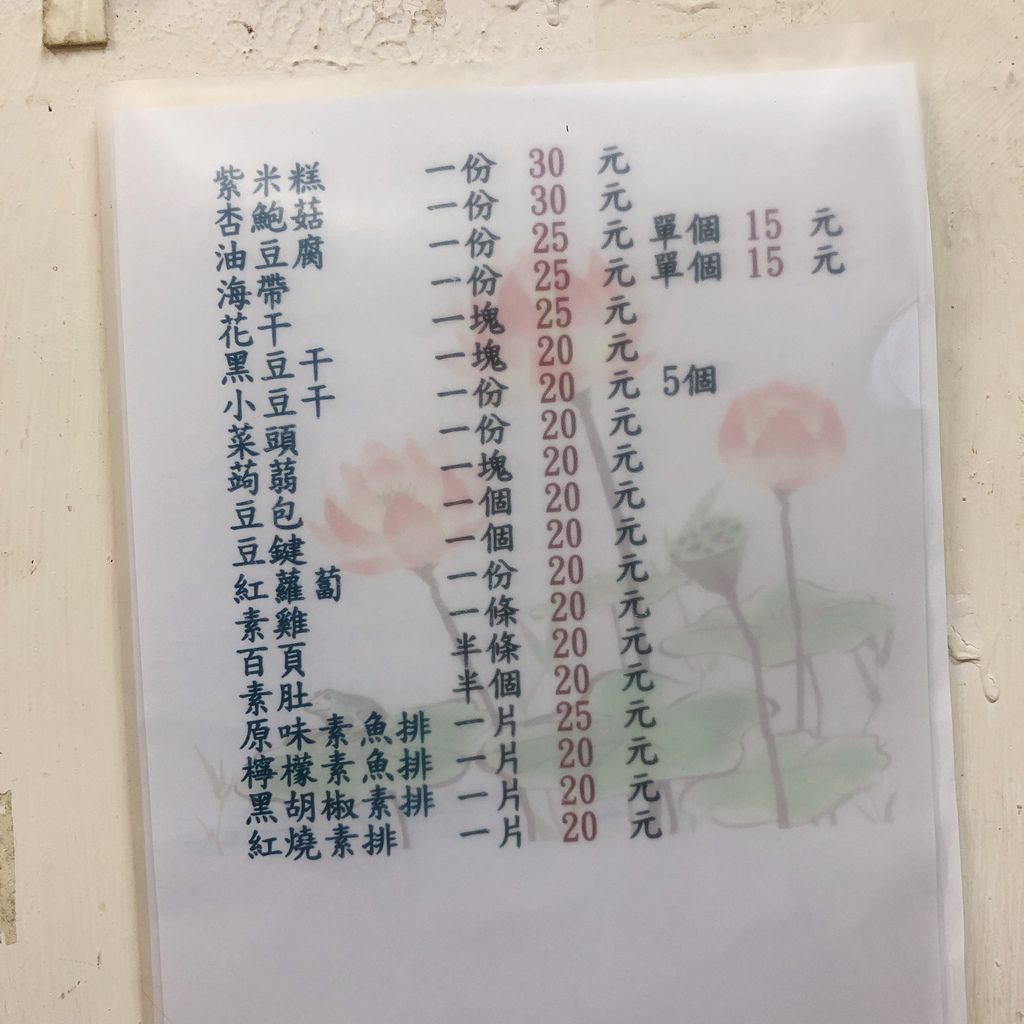 紫米糕 一份 30 元
杏鮑菇 一份 30 元
油豆腐 一份 25 元 單個 15 元
海帶 一份 25 元 單個 15 元
花干 一塊 25 元
黑豆干 一塊 20 元
小豆干 一份 20 元 5個
菜頭 一份 20 元
蒟蒻 一塊 20 元
豆包 一個 20 元
豆鍵 一個 20 元
紅蘿蔔 一份 20 元
素雞 一條 20 元
百頁 半條 20 元
素肚 半個 20 元
原味素魚排 一片 25 元
檸檬素魚排 一片 20 元
黑胡椒素排 一片 20 元
紅燒素排 一片 20 元